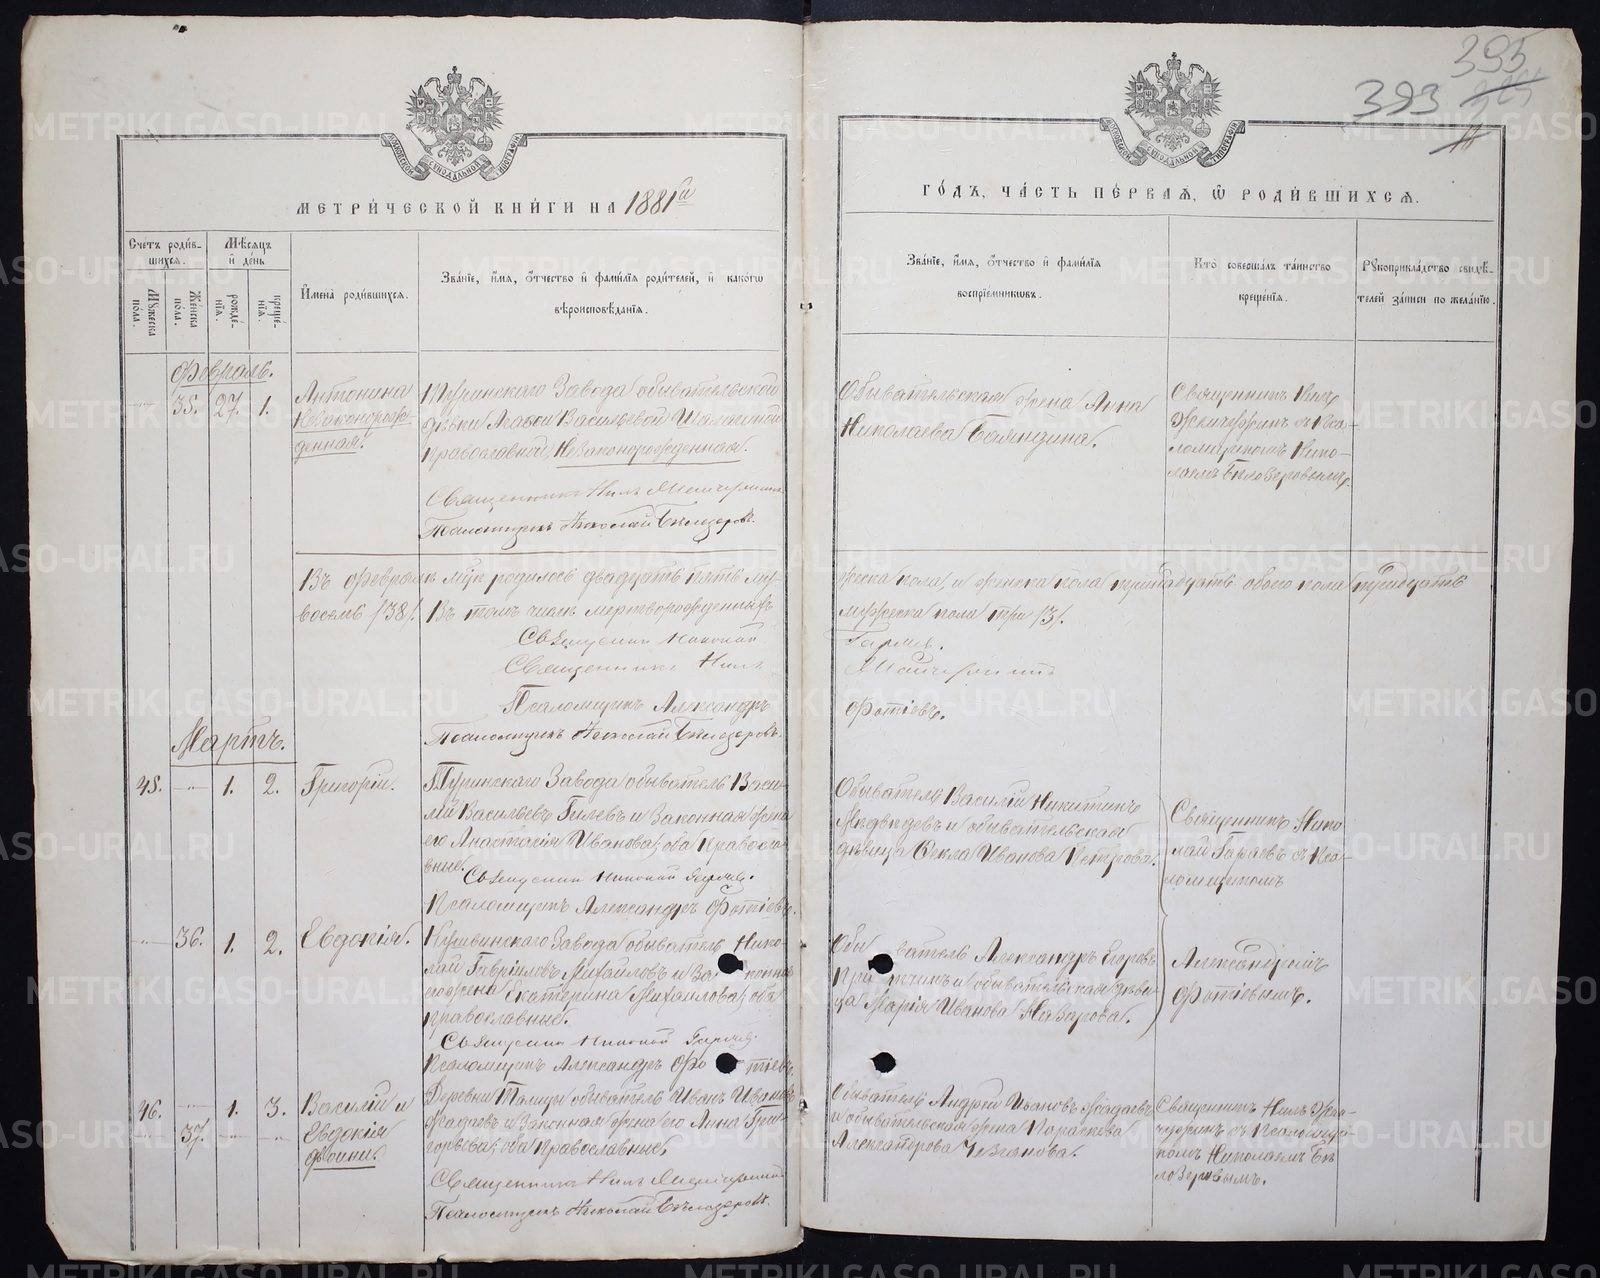 395
393
МЕТРИ́ЧЕСКОЙ КНИ́ГИ НА 1881й
ГО́ДЪ, ЧА́СТЬ ПЕ́РВАЯ, Ѡ РОДИ́ВШИХСЯ.
Сче́тъ роди́в-
шихся.
Мѣ́сяцъ
и де́нь
Му́жеска
пола.
Же́нска
пола.
рожде́-
нія.
креще́-
нія.
И́мена роди́вшихся.
Зва́ніе, и́мя, о́тчество и фами́лія роди́телей, и како́гѡ
вѣроисповѣ́данія.
Зва́ніе, и́мя, о́тчество и фами́лія
воспріе́мникѡвъ.
Кто̀ соверша́лъ та́инство
креще́нія.
Рукоприкла́дство свидѣ́-
телей за́писи по жела́нію.
Февраль.
35. 27. 1.
Антонина
Незаконорож-
денная.
Туринскаго Завода обывательской
дѣвки Любови Васильевой
православной, Незаконорожденная.
Священникъ Нилъ
Псаломщикъ Николай Бѣлозеровъ.
Обывательская жена Анна
Николаева Баяндина.
Священникъ Нилъ
съ Пса-
ломщикомъ Нико-
лаемъ Бѣлозеровымъ.
Въ Февралѣ м-цѣ родилось двадцать пять му-
жеска пола, и женска пола тринадцать обоего пола тридцать
восемь /38/. Въ томъ числѣ мертворожденныхъ
мужеска пола три /3/.
Священникъ Николай
Гаряев.
Священникъ Нилъ
Псаломщикъ Александръ
Фотіевъ.
Псаломщикъ Николай Бѣлозеровъ.
Мартъ.
45. -"- 1. 2.
Григорій.
Туринскаго Завода обыватель Васи-
лій Васильевъ Гилевъ и законная жена
его Анастасія Иванова; оба Православ-
ные.
Священникъ Николай Гаряев.
Псаломщикъ Александръ Фотіевъ.
Обыватель Василій Никитинъ
Медвѣдевъ и обывательская
дѣвица Ѳекла Иванова Петрова.
Священникъ Нико-
лай Гаряевъ съ Пса-
ломщикомъ
Александромъ
Фотіевымъ.
-"- 36. 1. 2.
Евдокія.
Кушвинскаго Завода обыватель Нико-
лай Гавріиловъ Михайловъ и законная
его жена Екатерина Михаилова; оба
православные.
Священникъ Николай Гаряев.
Псаломщикъ Александръ Фотіевъ.
Обыватель Александръ Егоровъ
и обывательская дѣви-
ца Марія Иванова Назарова.
46. -"- 1. 3.
-"- 37. -"- -"-
Василій и
Евдокія
двойни.
Деревни Талицы обыватель Иванъ Ивановъ
Фадѣевъ и законная жена его Анна Гри-
горьева; оба Православные.
Священникъ Нилъ
Псаломщикъ Николай Бѣлозеровъ.
Обыватель Андрей Ивановъ Фадѣевъ
и обывательская жена Параскева
Александрова
Священникъ Нилъ
съ Псаломщи-
комъ Николаемъ Бѣ-
лозеровымъ.